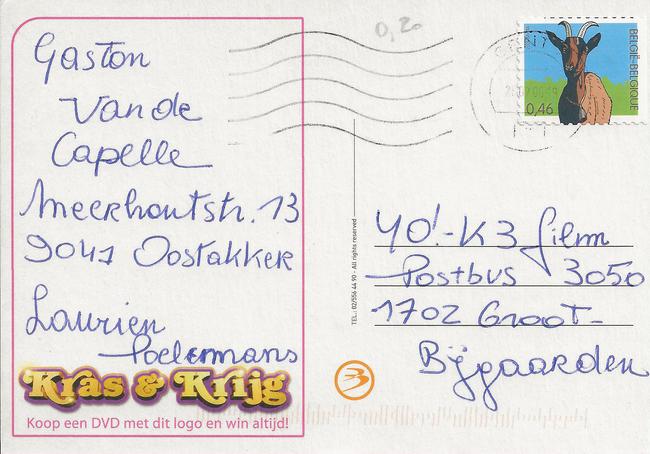 0,20
Gaston
Van de
Capelle
Meerhoutstr. 13
9041 Oostakker
Laurien
Poelemans
Kras & Krijg
Koop een DVD met dit logo en win altijd!
TEL.: 02/556 44 90 - All rights reserved
GENT
BELGIË-BELGIQUE
0,46
YO!-K3 film
Postbus 3050
1702 Groot-
Bijgaarden